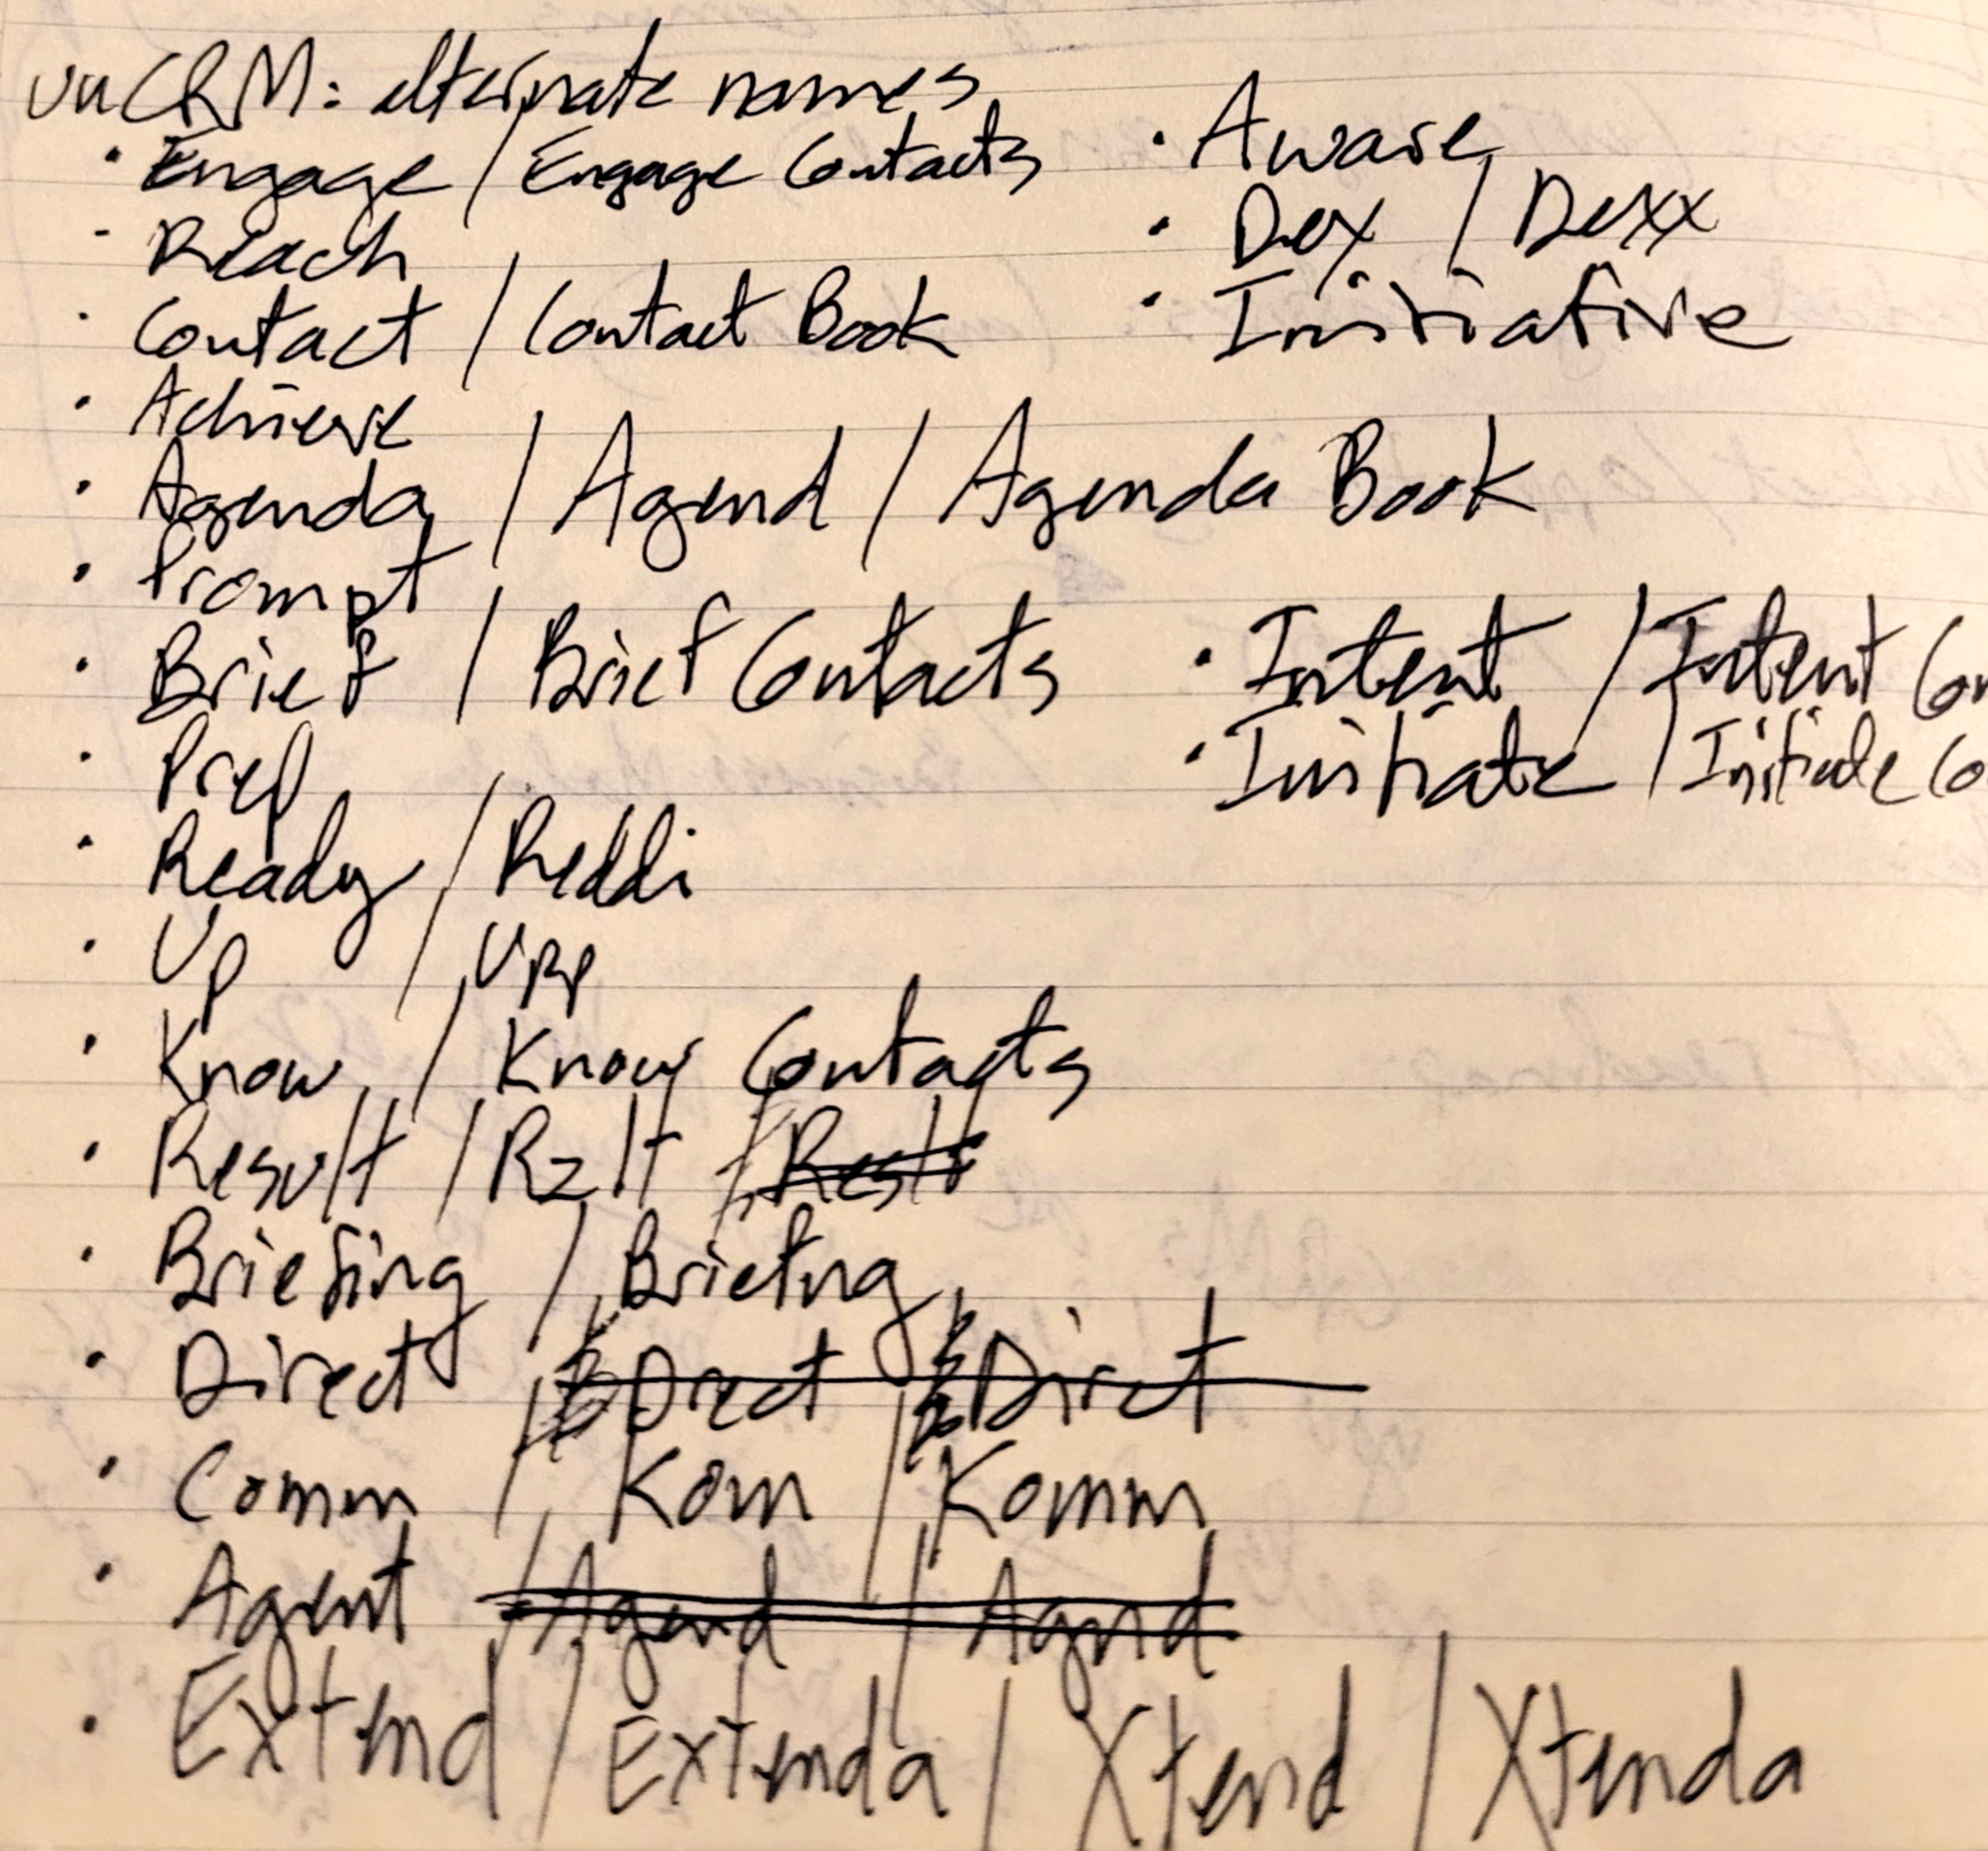 unCRM: alternate names
· Engage / Engage Contacts
· Reach
· Contact / Contact Book
· Achieve
· Agenda / Agend / Agenda Book
· Prompt
· Brief / Brief Contacts
· Prep
· Ready / Reddi
· Up / Upp
· Know / Know Contacts
· Result / Rzlt / Reslt
· Briefing / Briefng
· Direct / Drect / Dirct
· Comm / Kom / Komm
· Agent / Agend / Agnd
· Extend / Extenda / Xtend / Xtenda
· Aware
· Dex / Dexx
· Initiative
· Intent / Intent Con
· Initiate / Initiate Co